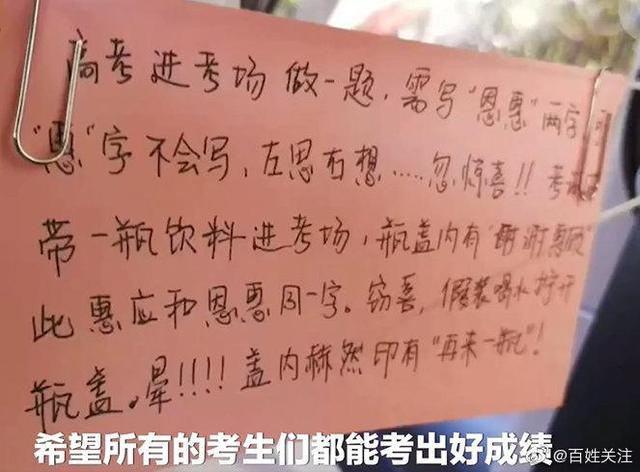 高考进考场做一题，需写“恩惠”两字，
“惠”字不会写，左思右想……忽惊喜!! 考
带一瓶饮料进考场，瓶盖内有“谢谢惠顾”
此惠应和恩惠同一字。窃喜，假装喝水拧开
瓶盖。晕!!!! 盖内赫然印有“再来一瓶”!
希望所有的考生们都能考出好成绩
@百姓关注